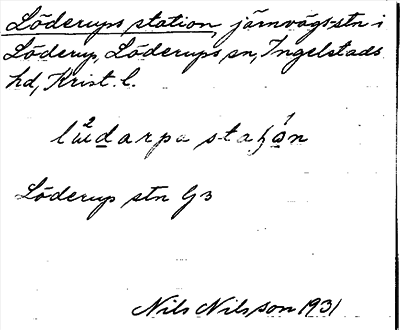 Löderups station, järnvägsstn i
Löderup, Löderups sn, Ingelstads
hd, Krist. l.
Löderup stn G3
Nils Nilsson 1931